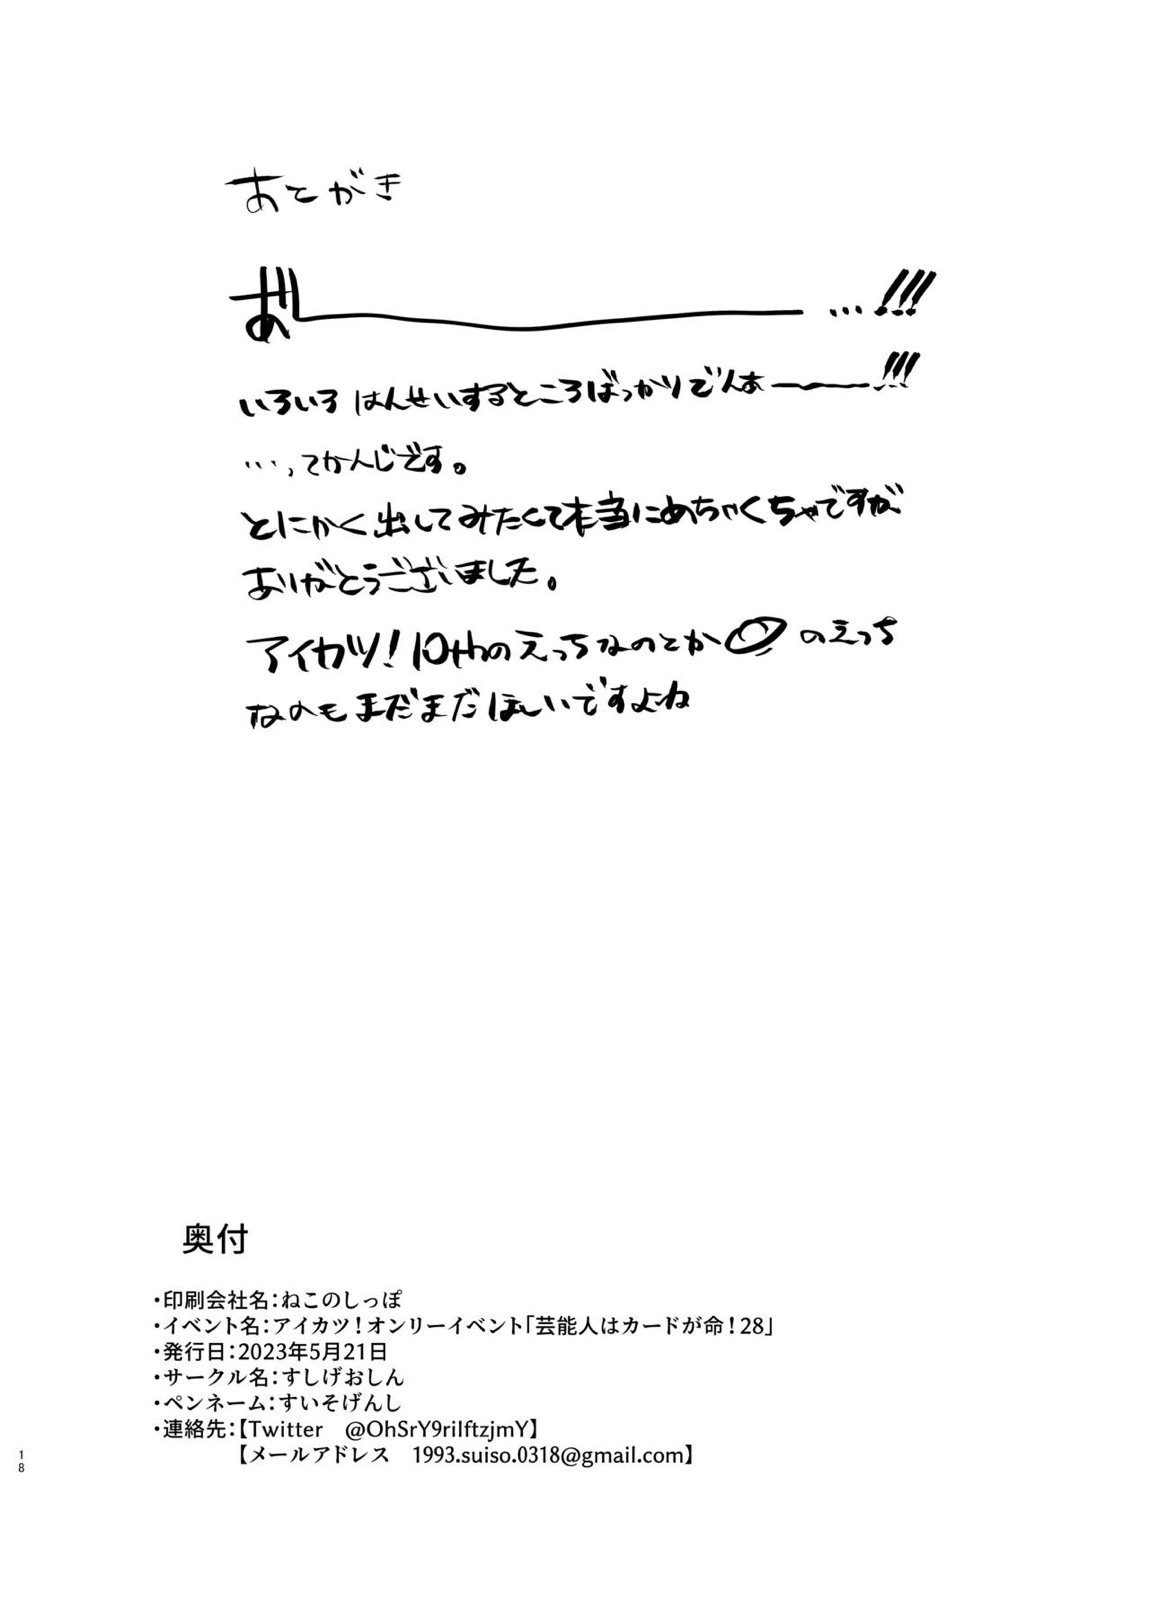 あとがき
あ゛ー…!!!
いろいろ はんせいするところばっかりでんあー!!!
…ってかんじです。
とにかく出してみたくて本当にめちゃくちゃですが
ありがとうございました。
アイカツ!10thのえっちなのとか のえっち
なのもまだまだほしいですよね
奥付
・印刷会社名：ねこのしっぽ
・イベント名：アイカツ！オンリーイベント「芸能人はカードが命！28」
・発行日：2023年5月21日
・サークル名：すしげおしん
・ペンネーム：すいそげんし
・連絡先：【Twitter　@OhSrY9riIftzjmY】
【メールアドレス　1993.suiso.0318@gmail.com】
18